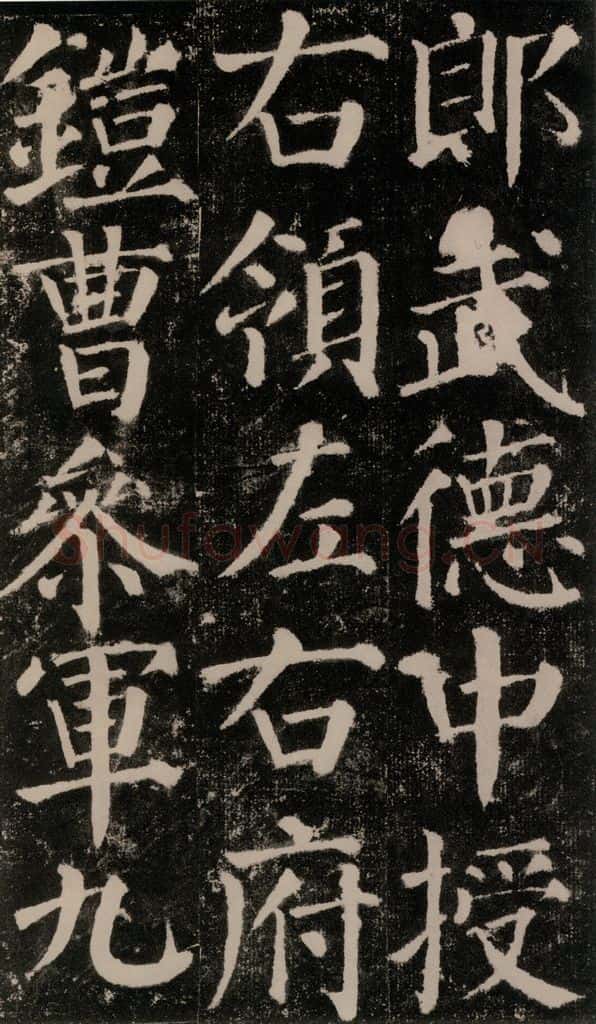 郎武德中授
右領左右府
鎧曹參軍九
Shufawang.CN